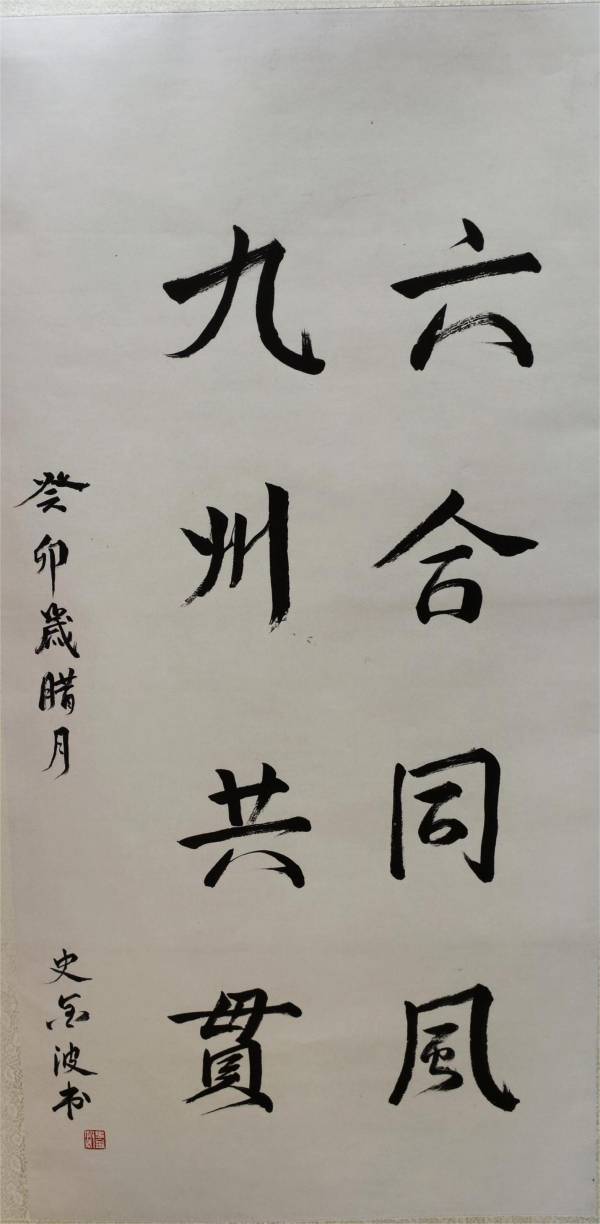 六合同風
九州共貫
癸卯歲腊月
史金波书